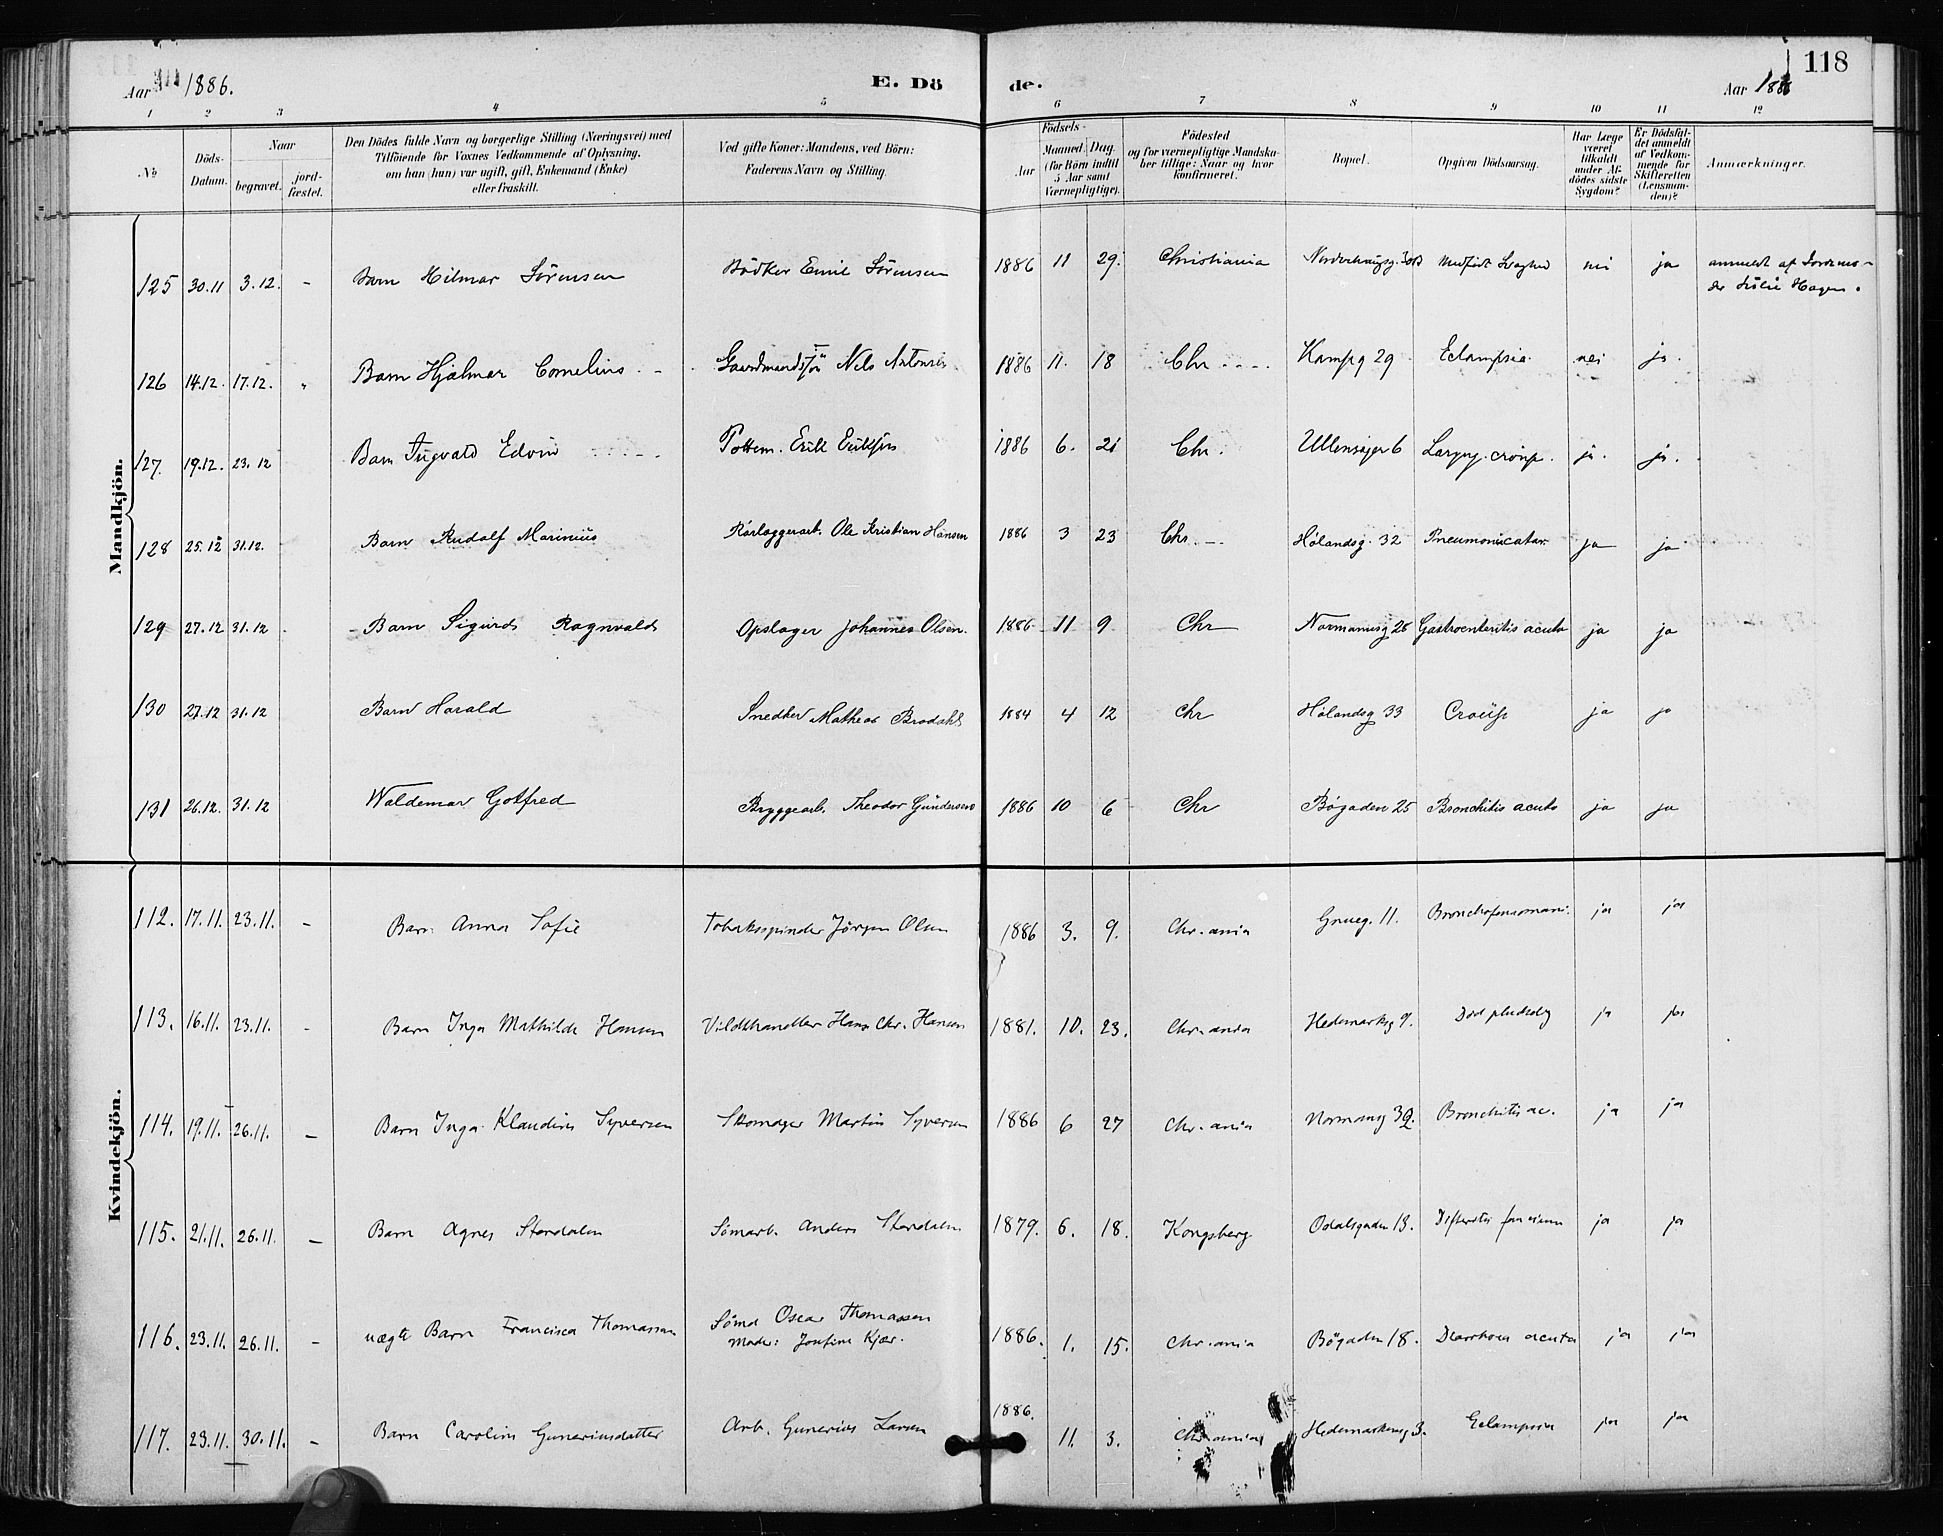 118
Aar 1886.
E. Dö de.
Aar 1886
1 2 3 4 5 6 7 8 9 10 11 12
№
Döds-Datum.
Naar
begravet.
jord-fæstet.
Den Dödes fulde Navn og borgerlige Stilling (Næringsvei) med
Tilföiende for Voxnes Vedkommende af Oplysning,
om han (hun) var ugift, gift, Enkemand (Enke)
eller fraskilt.
Ved gifte Koner: Mandens, ved Börn:
Faderens Navn og Stilling.
Födsels-
Aar
Maaned. Dag.
(for Börn indtil
5 Aar samt
Værnepligtige).
Födested
og for værnepligtige Mandska-
ber tillige: Naar og hvor
konfirmeret.
Bopæl.
Opgiven Dödsaarsag.
Har Læge
været
tilkaldt
under Af-
dödes sidste
Sygdom?
Er Dödsfal-
det anmeldt
af Vedkom-
mende for
Skifteretten
(Lensman-
den)?
Anmærkninger.
Mandkjön.
125 30.11 3.12. - Barn Hilmar Sörensen Bödker Emil Sörensen 1886 11 29. Christiania Nordenhaugsg. Medfödt Svaghed nei ja anmeldt af Jordemo-
der Julie Hagen.
126 14.12. 17.12. " Barn Hjalmar Cornelius - Gaardmandssön Nils Antonsen 1886 11. 18 Chr. Kampg 29 Eclampsia. nei ja.
127. 19.12. 23.12 Barn Ingvald Edvin Pottem. Erik Eriksen 1886 6. 21 Chr. Ullensager 6 Laryng. croup. ja. ja.
128 25.12 31.12. Barn Rudolf Marinius Rörlæggerarb. Ole Kristian Hansen 1886 3 23 Chr. - Hölandsg. 32 Pneumoni catar. ja ja
129 27.12 31.12 - Barn Sigurd Ragnvald Opslager Johannes Olsen. 1886 11 9 Chr Normannsg 28 Gastroenteritis acuta ja ja
130 27.12 31.12 Barn Harald Snedker Matheas Brodahl 1884 4 12 Chr Hölandsg 33 Croup ja ja
131 26.12. 31.12 Waldemar Gotfred Bryggearb. Theodor Gundersen 1886 10 6 Chr Bögaden 25 Bronchitis acuta ja ja
Kvindekjön.
112. 17.11. 23.11. - Barn Anna Sofie Tobaksspinder Jörgen Olsen 1886 3. 9. Chr.ania Grueg. 11. Bronchopneumoni. ja ja
113. 16.11. 23.11. - Barn Inga Mathilde Hansen Vildthandler Hans Chr. Hansen 1881. 10. 23. Chr.ania Hedemarksg 9. Död pludselig ja ja
114. 19.11. 26.11. - Barn Inga Klaudine Syversen Skomager Martin Syversen 1886 6 27 Chr.ania Normansg 39 Bronchitis ac. ja ja
115. 21.11. 26.11. - Barn Agnes Stordalen Sömarb. Anders Stordalen 1879. 6. 18. Kongsberg Odalsgaden 13. Difteritis faucium ja ja
116. 23.11. 26.11. - uægte Barn Francisca Thomassen Sömd Oscar Thomassen
Moder: Josefine Kjær. 1886. 1. 15. Chr.ania Bögaden 18. Diarrhoea acuta ja ja
117. 23.11. 30.11. - Barn Caroline Guneriusdatter Arb. Gunerius Larsen 1886. 11. 3. Chr.ania Hedemarkensg 3. Eclampsia ja ja